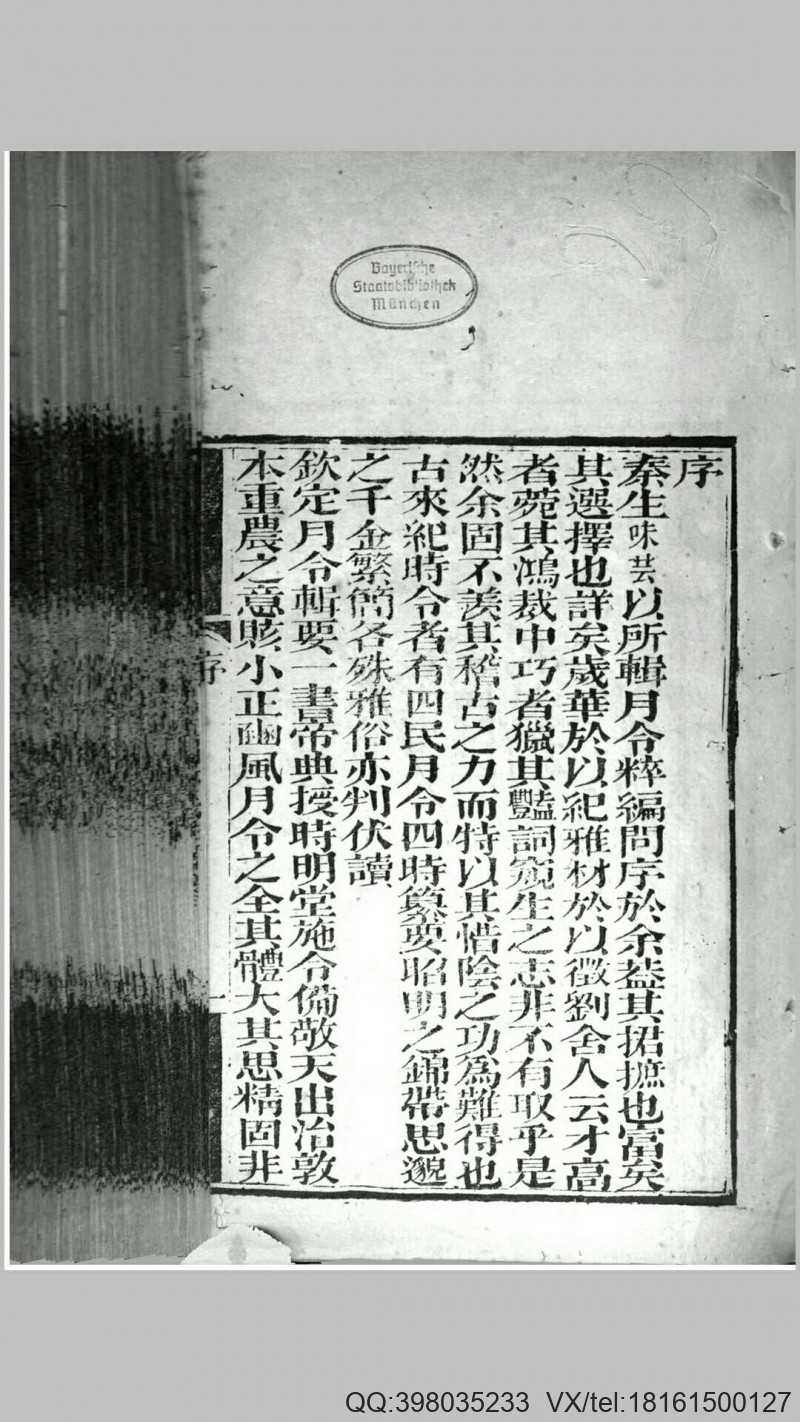 Bayerische
Staatsbibliothek
München
序
秦生味芸以所輯月令粹編問序於余葢其捃摭也富矣
其選擇也詳矣歲華於以紀雅材於以徵劉舍人云才高
者菀其鴻裁中巧者獵其豔詞窺生之志非不有取乎是
然余固不羨其稽古之力而特以其惜陰之功為難得也
古來紀時令者有四民月令四時纂要昭明之錦帶思邈
之千金繁簡各殊雅俗亦判伏讀
欽定月令輯要一書帝典授時明堂施令備敬天出治敦
本重農之意賅小正豳風月令之全其體大其思精固非
序
一
QQ:398035233 VX/tel:18161500127